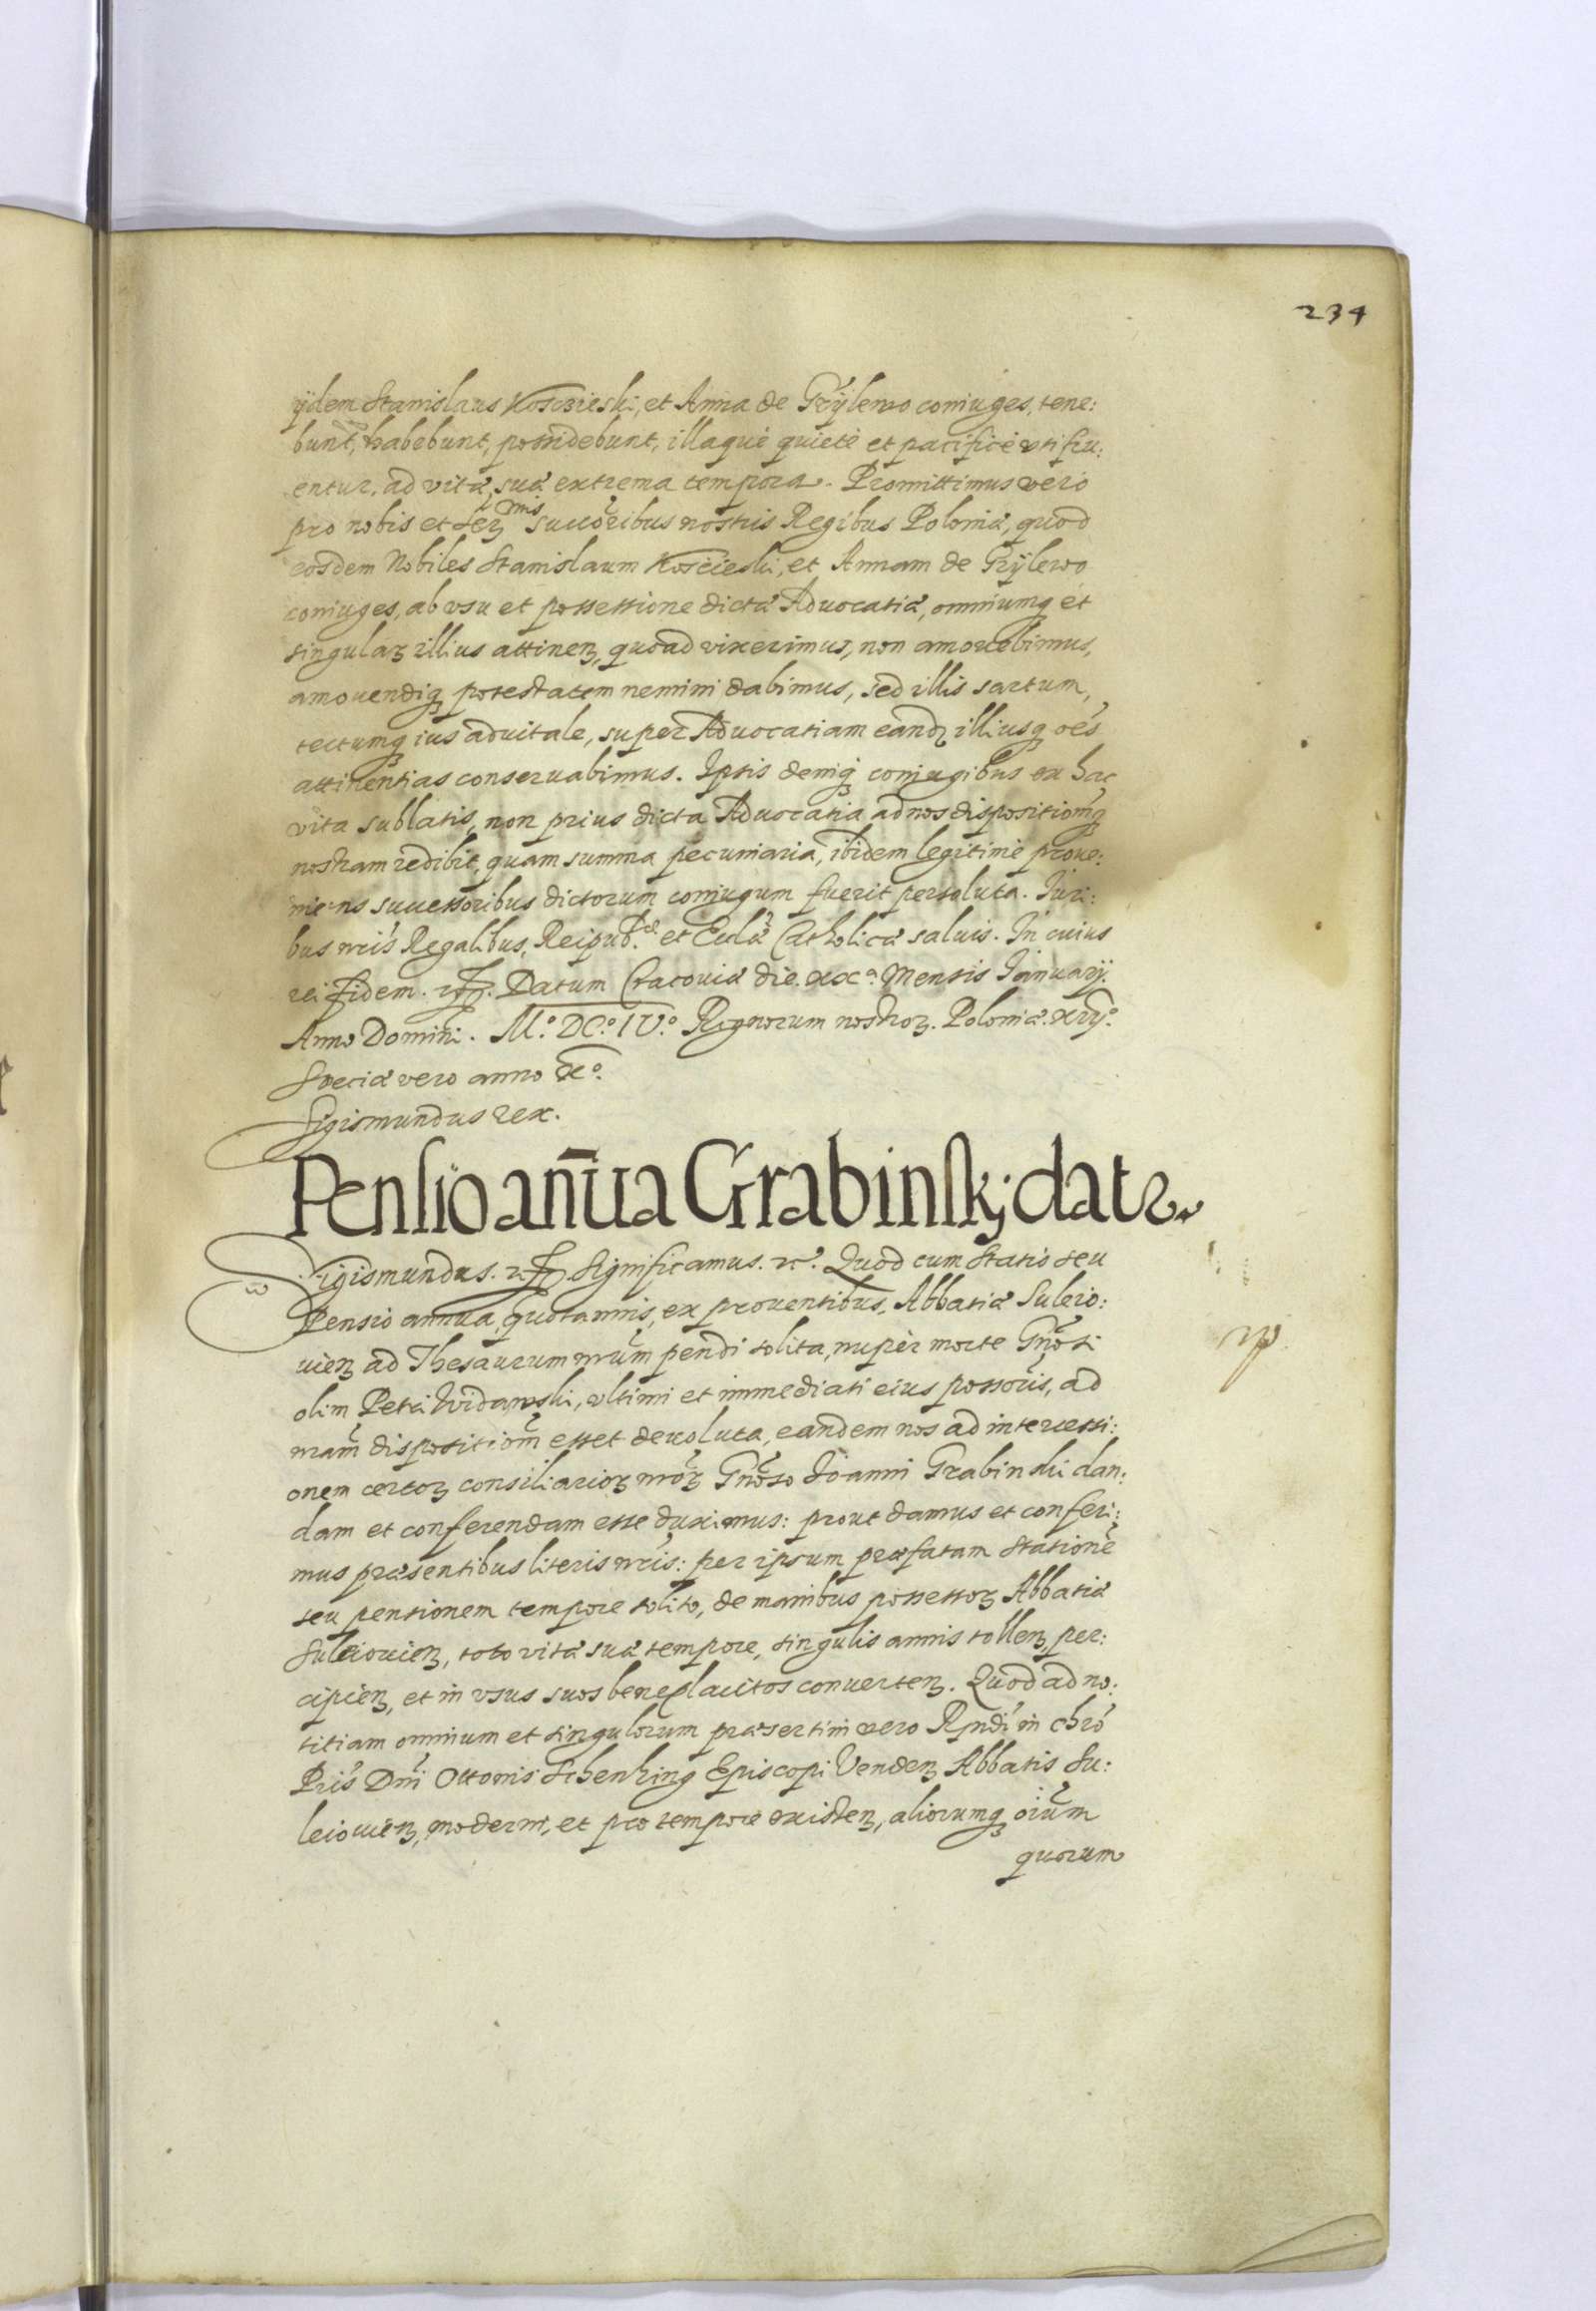 234
ijdem Stanislaus Kosczieski, et Anna de Gryÿlewo coniuges, tene:
bunt, habebunt, possidebunt, illaque quiete et pacificè vti fru:
entur, ad vitæ suæ extrema tempora. Promittimus vero
pro nobis et Serꝫmis succoribus nostris Regibus Poloniæ, quod
eosdem Nobiles Stanislaum Koscieski, et Annam de Gryÿlewo
coniuges, ab vsu et possessione dictæ Aduocatiæ, omniumqꝫ et
singularꝫ illius attinenꝫ, quoad vixerimus, non amouebimus,
amouendiqꝫ potestatem nemini dabimus, sed illis sartum,
tectumqꝫ ius aduitale, super Aduocatiam eandꝫ illiusqꝫ oẽs
attinentias conseruabimus. Ipsis deniqꝫ coniugibus ex hac
vita sublatis, non prius dicta Aduocatia ad nos dispositionẽqꝫ
nostram redibit, quam summa pecuniaria, ibidem legitimè proue:
niens successoribus dictorum coniugum fuerit persoluta. Iuri:
bus nrĩs Regalibus, Reipub.cæ et Ecclæ Catholicæ saluis. In cuius
rei fidem. Datum Cracouiæ die. xx.a Mensis Januarij.
Anno Domini. M.o DC.o IV.o Regnorum nostrorꝫ. Poloniæ. xvij.o
Sueciæ vero anno x.o
Sigismundus rex.
Pensio añua Grabinskj datr.
Sigismundus. Significamus. Quod cum Statio seu
Pensio annua, quotannis, ex prouentibus, Abbatiæ Suleio:
uienꝫ ad Thesaurum nrũm pendi solita, nupèr morte Gñosi
olim Petri Widawski, vltimi et immediati eius possoris, ad
nram̃ dispositiom̃ esset deuoluta, eandem nos ad intercessi:
onem certorꝫ consiliariorꝫ nrõrꝫ Gñoso Joanni Grabinski dan:
dam et conferendam esse duximus: prout damus et conferi:
mus præsentibus literis nrĩs: per ipsum præfatam Stationẽ
seu pensionem tempore solito, de manibus possessorꝫ Abbatiæ
Suleiouienꝫ, toto vitæ suæ tempore, singulis annis tollenꝫ, per:
cipienꝫ, et in vsus suos beneplacitos conuertenꝫ. Quod ad no:
titiam omnium et singulorum præsertim vero Rndĩ in chrõ
Prĩs Dnĩ Ottonis Schenking Episcopi Vendenꝫ Abbatis Su:
leiouienꝫ, moderni, et pro tempore existenꝫ, aliorumqꝫ oiũm
quorum